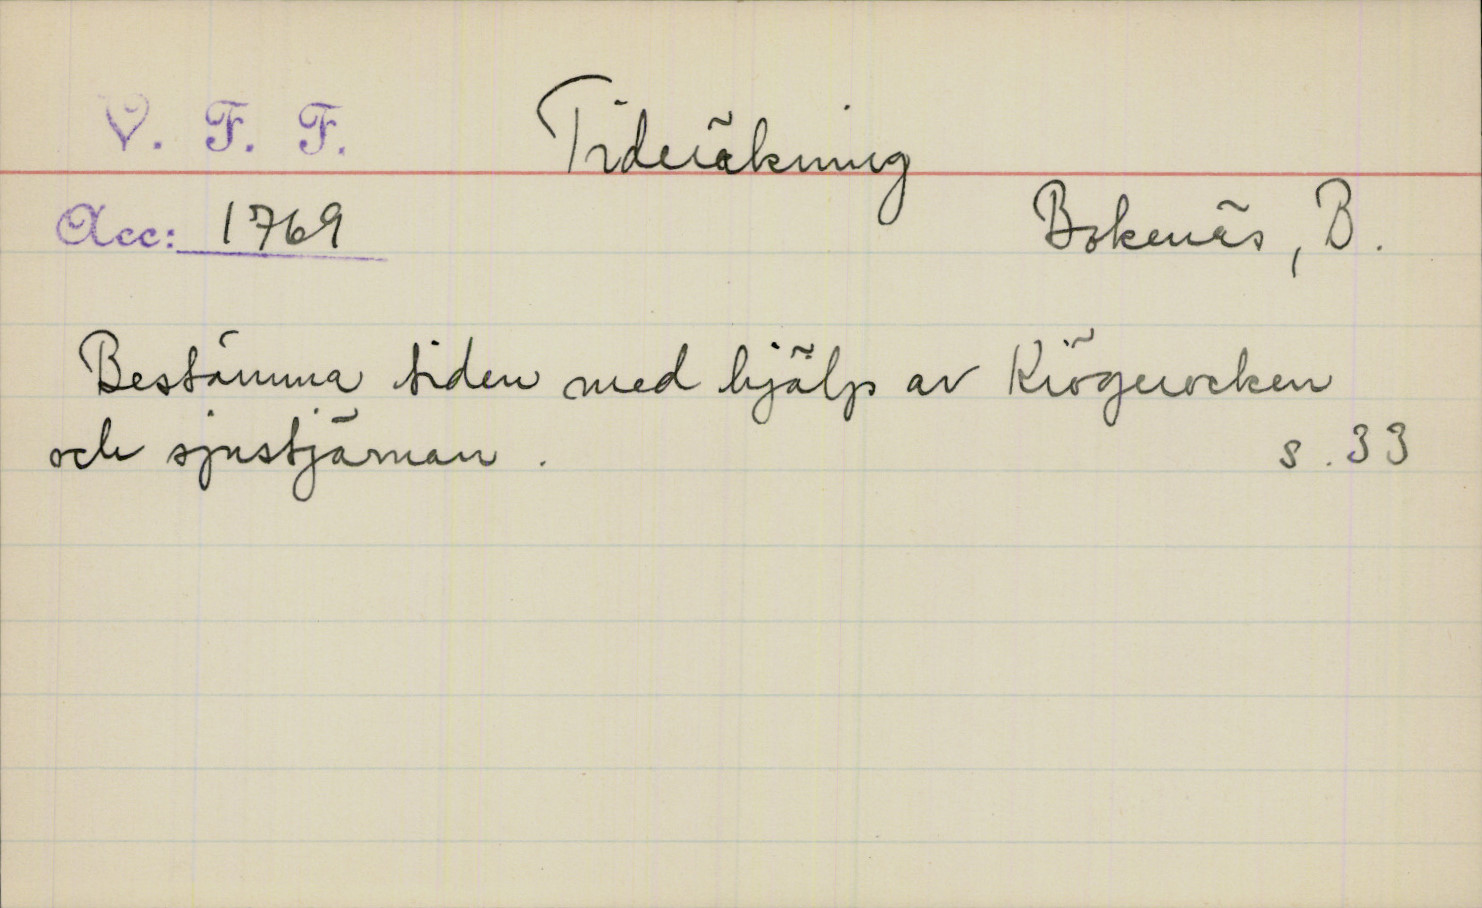 V. F. F.
Tideräkning
Acc: 1769
Bokenäs, B.
Bestämma tiden med hjälp av Krögerocken
och sjustjärnan. s. 33